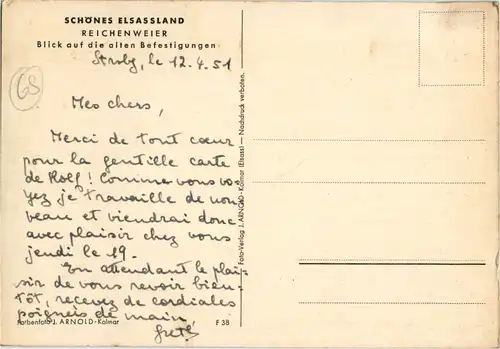 SCHÖNES ELSASSLAND
REICHENWEIER
Blick auf die alten Befestigungen
Strbg, le 12.4.51
68
Mes chers,
Merci de tout cœur
pour la gentille carte
de Rolf! Comme vous vo-
yez je travaille de nou-
veau et viendrai donc
avec plaisir chez vous
jeudi le 19.
En attendant le plai-
sir de vous revoir bien-
tôt, recevez de cordiales
poignées de main,
Farbenfoto J. ARNOLD-Kolmar
F 38
Foto-Verlag J. ARNOLD-Kolmar (Elsass) — Nachdruck verboten.